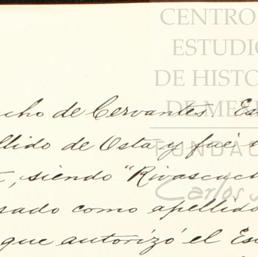 CENTRO
ESTUDIO
DE HISTO
DE ME
FUNDA
Carlos
cho de Cervantes. Es
llido de Osta y fué
, siendo "Rivascach
sado como apellido
que autorizó el Es